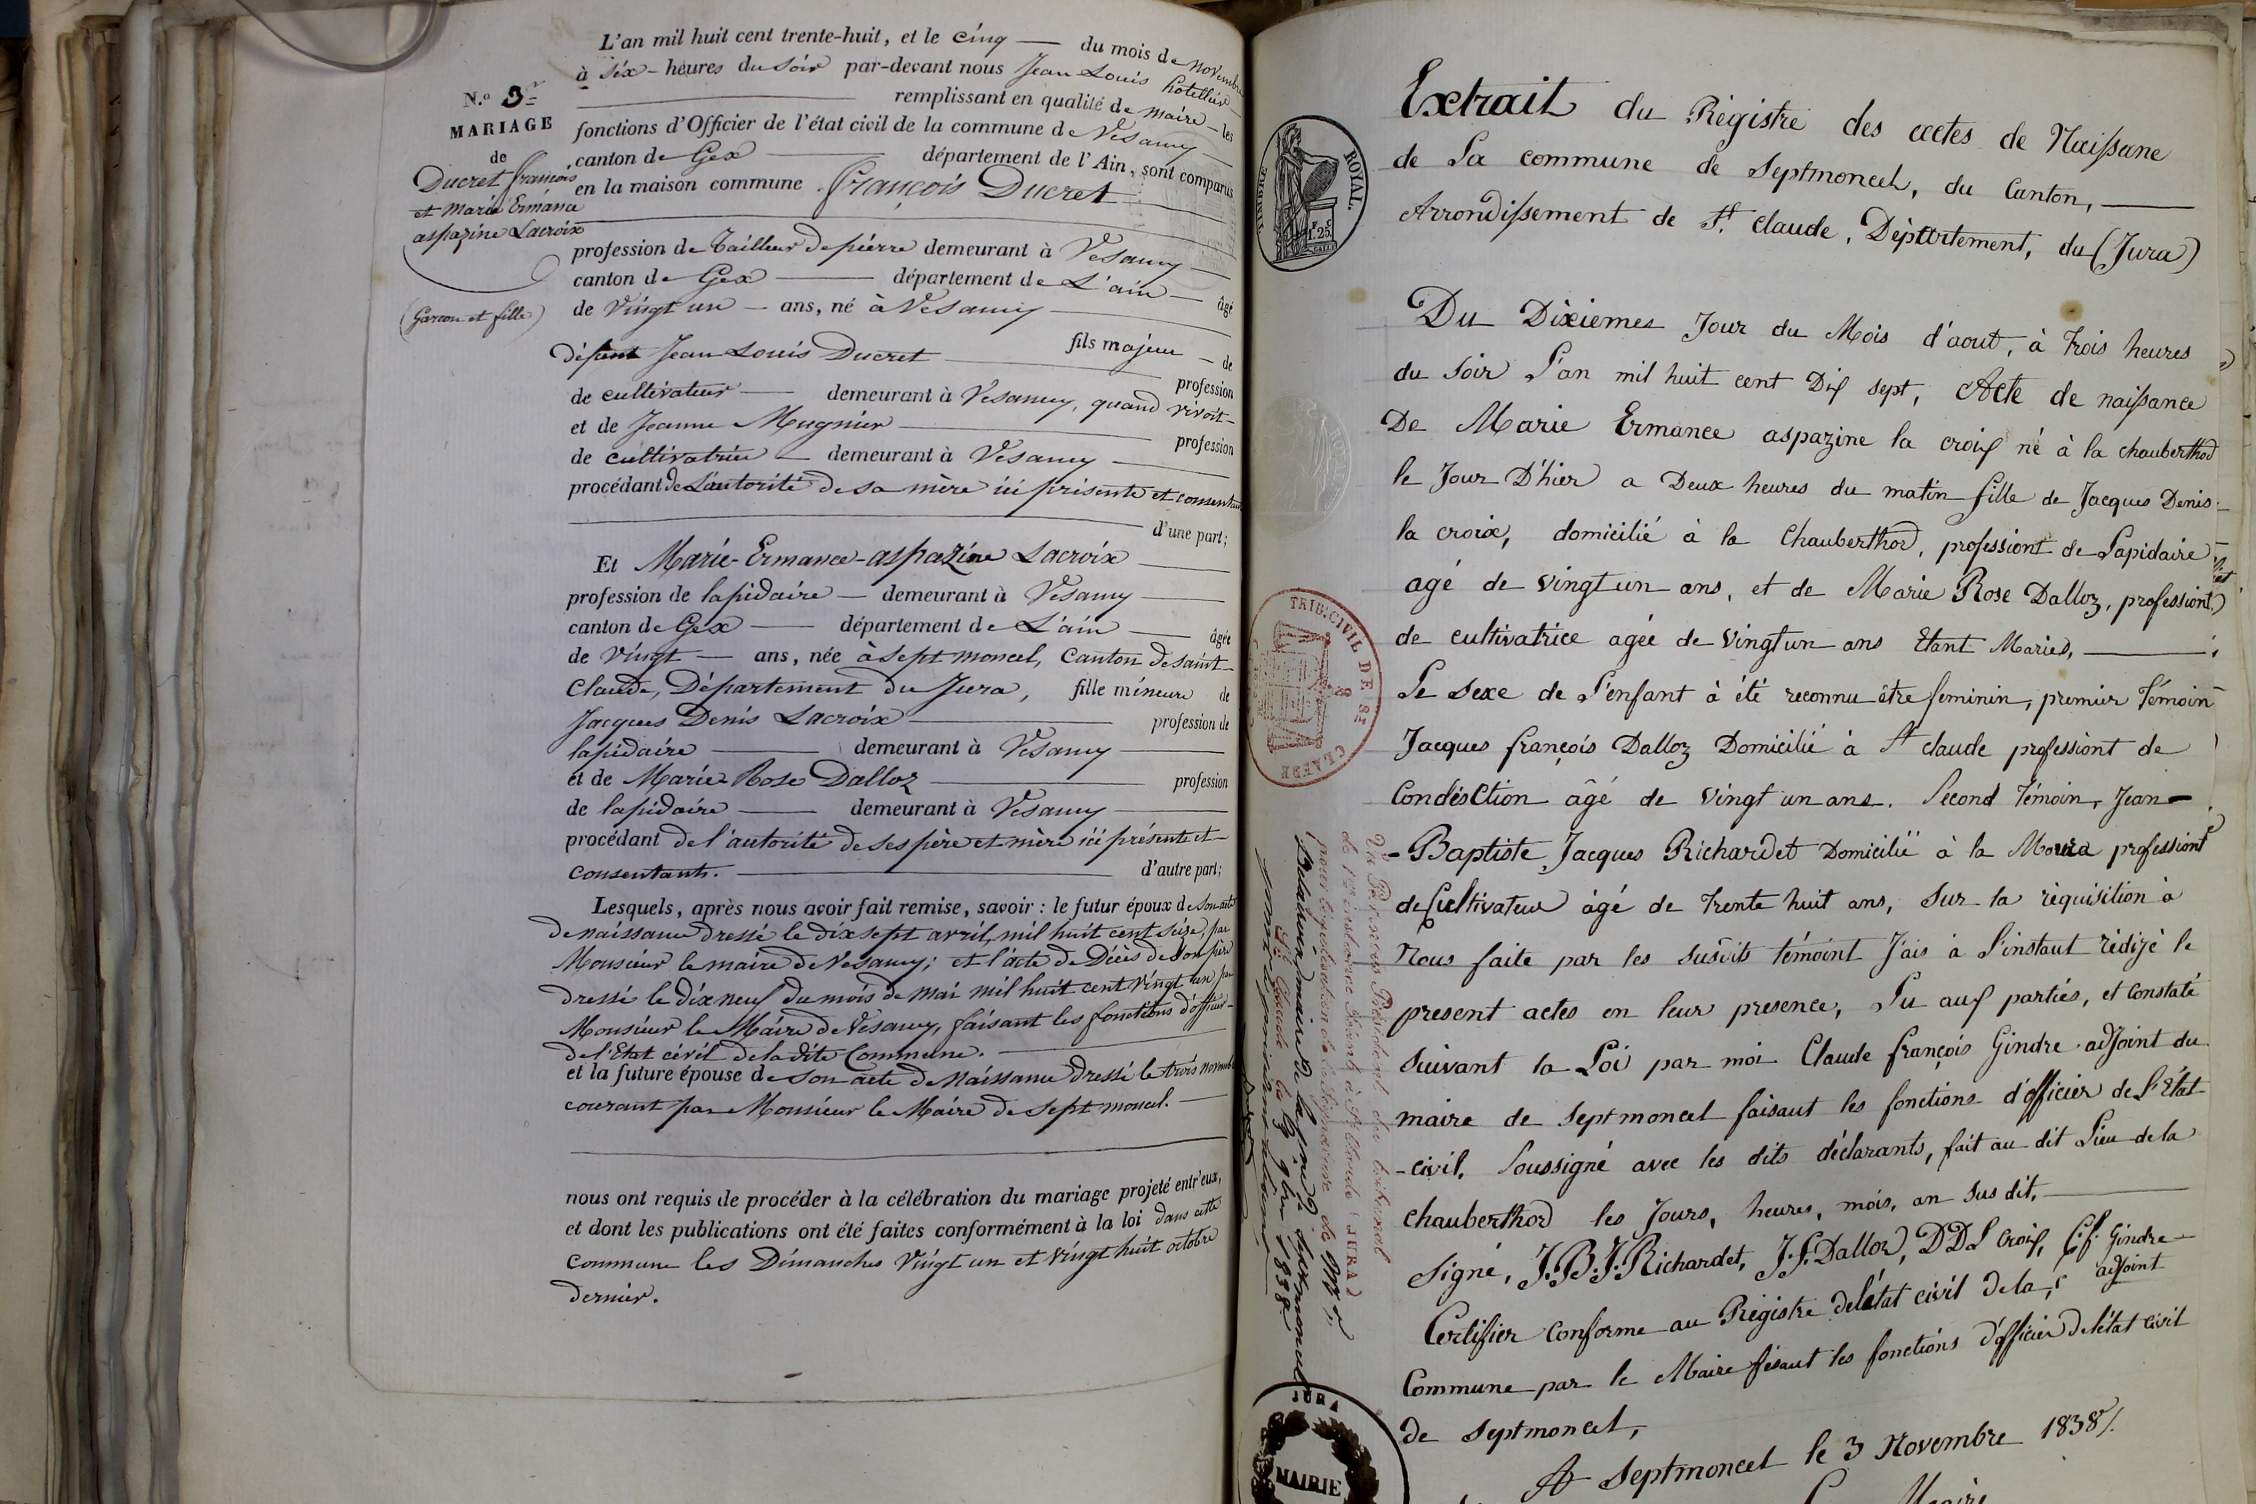 L'an mil huit cent trente-huit, et le cinq — du mois de novembre
à six - heures du soir par-devant nous Jean Louis hotellier
remplissant en qualité de maire - les
fonctions d'Officier de l'état civil de la commune de Vesancy
canton de Gex — département de l'Ain, sont comparus
en la maison commune. françois Ducret
N.o 3
MARIAGE
de
Ducret françois,
et Marie Ermance
aspazine Lacroix
(Garcon et fille)
profession de Tailleur de pierre demeurant à Vesancy
canton de Gex — département de L'ain — âgé
de Vingt un — ans, né à Vesancy
fils majeur — de
défunt Jean Louis Ducret — profession
de cultivateur — demeurant à Vesancy, quand vivoit
et de Jeanne Mugnier — profession
de cultivatrice — demeurant à Vesancy
procédant de L'autorité de sa mère ici présente et consentante
d'une part;
Et Marie-Ermance-aspazine Lacroix
profession de lapidaire — demeurant à Vesancy
canton de Gex — département de L'ain — âgée
de Vingt — ans, née à Sept moncel, Canton de saint-
Claude, Département du Jura, fille mineure de
Jacques Denis Lacroix — profession de
lapidaire — demeurant à Vesancy
et de Marie Rose Dalloz — profession
de lapidaire — demeurant à Vesancy
procédant de l'autorité de ses père et mère ici présents et
consentants. — d'autre part;
Lesquels, après nous avoir fait remise, savoir: le futur époux de son acte
de naissance dressé le dix sept avril, mil huit cent seize, par
Monsieur le maire de Vesancy; et l'acte de Décès de son père
dressé le dix neuf du mois de Mai mil huit cent vingt un par
Monsieur le Maire de Vesancy, faisant les fonctions d'officier
de l'Etat civil de la dite Commune.
et la future épouse de son acte de Naissance dressé le trois novembre
courant par Monsieur le Maire de Sept moncel.
nous ont requis de procéder à la célébration du mariage projeté entr'eux,
et dont les publications ont été faites conformément à la loi dans cette
commune les Dimanches Vingt un et vingt huit octobre
dernier.
TIMBRE ROYAL.
1 F. 25 C.
Extrait du Régistre des actes de Naissance
de La commune de Septmoncel, du Canton,
Arrondissement de St. claude, Département, du (Jura)
Du Dixiemes Jour du Mois d'aout, à trois heures
du soir L'an mil huit cent Dix sept, Acte de naissance
De Marie Ermance aspazine la croix né à la chauberthod
le Jour D'hier a Deux heures du matin fille de Jacques Denis
la croix, domicilié à la Chauberthod, professiont de Lapidaire
agé de vingt un ans, et de Marie Rose Dalloz, professiont
de cultivatrice agée de vingt un ans Etant Mariés,
Le Sexe de L'enfant à été reconnu être feminin, premier témoin
Jacques françois Dalloz Domicilié à St claude professiont de
CondésCtion âgé de vingt un ans. Second témoin, Jean
- Baptiste, Jacques Richardet Domicilié à la Moura professiont
de Cultivateur âgé de trente huit ans, Sur la réquisition à
Nous faite par les susdits témoint J'ais à L'instant rédizé le
present actes en leur presence, Lu aux parties, et constaté
suivant la Loi par moi Claude françois Gindre adjoint du
maire de septmoncel faisant les fonctions d'officier de L'Etat
- civil, Soussigné avec les dits déclarants, fait au dit Lieu de la
chauberthod les Jours, heures, mois, an sus dit,
Signé, J.B.J. Richardet, J.f. Dalloz, DDL Croix, C.f. Gindre
adjoint
Certifier conforme au Régistre de létat civil de la
Commune par le Maire fésant les fonctions d'officier de létat civil
de Septmoncel,
A Septmoncel le 3 Novembre 1838
Maire
TRIB. CIVIL DE ST CLAUDE
Vu Par nous Président du tribunal
de 1re instance séant à St Claude (JURA)
pour légalisation de la Signature de Mr
maire de Septmoncel
St Claude le 3 9bre 1838
JURA
MAIRIE